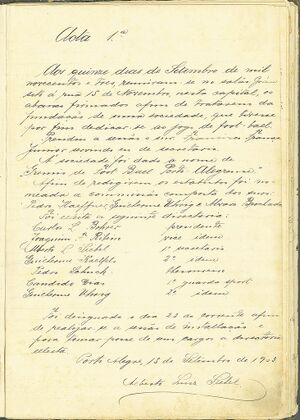 Acta 1.ª
Aos quinze dias de Setembro de mil
novecentos e tres, reuniram-se no salão
sito á rua 15 de Novembro, nesta capital, os
abaixo firmados afim de tratarem da
fundação de uma sociedade, que tivesse
por fim dedicar-se ao jogo de foot-ball.
Presidiu a sessão
Junior servindo eu de secretario.
A sociedade foi dado o nome de
Gremio de Foot Ball Porto Alegrense.
Afim de redigirem os estatutos foi no-
meada a commissão composta dos snrs.
Pedro Haeffner, Guilherme Uhrig e Alvaro Brochado
Foi eleita a seguinte directoria:
Carlos L. Bohrer presidente
Joaquim Ribeiro vice idem
Alberto L. Siebel 1º secretario
Guilherme Kallfelz 2º idem
Pedro Schuck thesoureiro
Candido Dias 1º guarda sport
Guilherme Uhrig 2º idem
Foi designado o dia 23 do corrente afim
de realizar-se a sessão de installação e
para tomar posse de seus cargos a directoria
eleita.
Porto Alegre, 15 de Setembro de 1903
Alberto Luiz Siebel